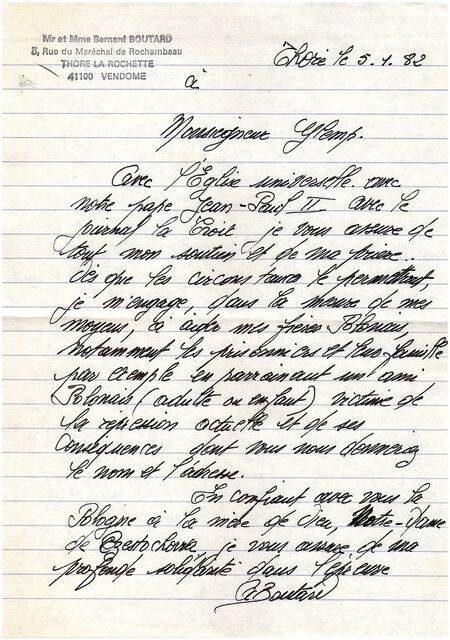 Mr et Mme Bernard BOUTARD
5, Rue du Maréchal de Rochambeau
THORE LA ROCHETTE
41100 VENDOME
Thoré le 5.1.82
à
Monseigneur Glemp.
Avec l'Église universelle avec
notre pape Jean-Paul II avec le
journal la Croix je vous assure de
tout mon soutien et de ma prière..
dès que les circonstances le permettront,
je m'engage, dans la mesure de mes
moyens, à aider mes frères Polonais,
notamment les prisonniers et leur famille
par exemple en parrainant un ami
Polonais (adulte ou enfant) victime de
la répression actuelle et de ses
conséquences dont vous nous donneriez
le nom et l'adresse.
En confiant avec vous la
Pologne à la mère de Dieu, Notre-Dame
de Czestochowa je vous assure de ma
profonde solidarité dans l'épreuve
Boutard